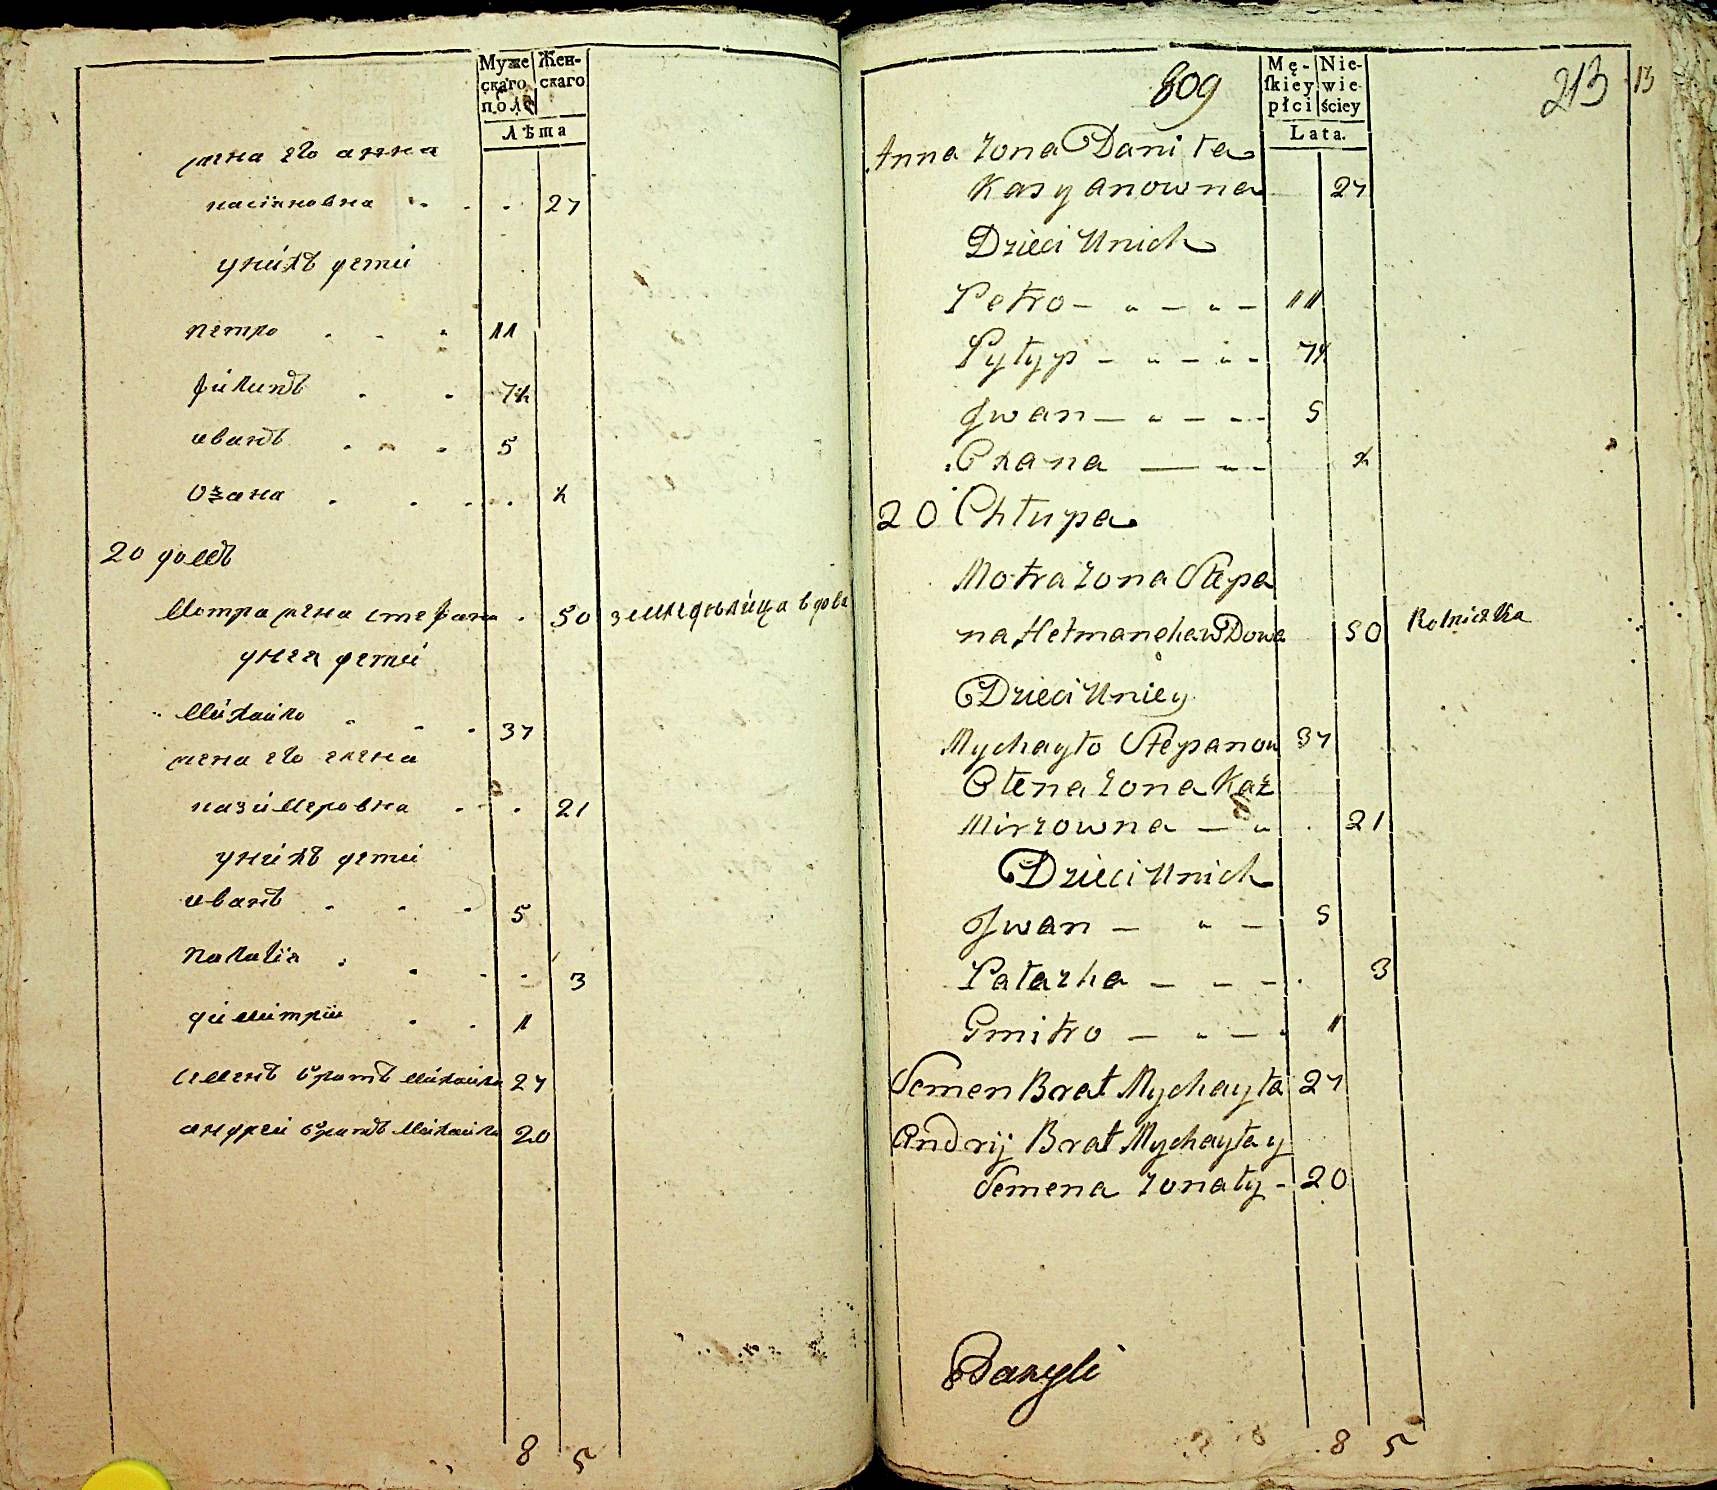 Муже Жен-
скаго скаго
полѹ
Лѣта
жена его анна
касіяновна 27
у нихъ дети
петро 11
филипъ 7½
иванъ 5
оѯана ½
20 домъ
Мотра жена стефана 50 земледѣлица вдова
у нея дети
Михайло 37
жена его елена
казимеровна 21
у нихъ дети
иванъ 5
палагія 3
димитрій 1
семенъ братъ михайла 27
андрей братъ михайла 20
8 5
809 213 13
Mę- Nie-
ſkiey wie-
płci ściey
Lata.
Anna żona Daniła
Kasyanowna 27
Dzieci Unich
Petro 11
Pyłyp 7½
Jwan 5
Oxana ½
20 Chłupa
Motra żona Stepa
na Hetmancha wDowa 50 Rolniczka
Dzieci Uniey
Mychayło Stepanow 37
Ołena żona Kaź
Mirzowna 21
Dzieci Unich
Jwan 5
Pałazha 3
Dmitro 1
Semen Brat Mychayła 27
Andrij Brat Mychayła y
Semena żonaty 20
Bazyli
8 5